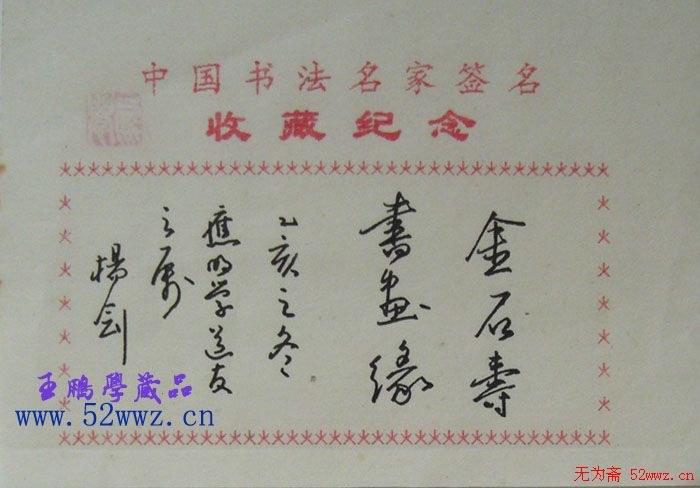 中国书法名家签名
收藏纪念
金石壽
書畫緣
乙亥之冬
應学道友
之属
楊剑
王鵬學藏品
www.52wwz.cn
无为斋 52wwz.cn